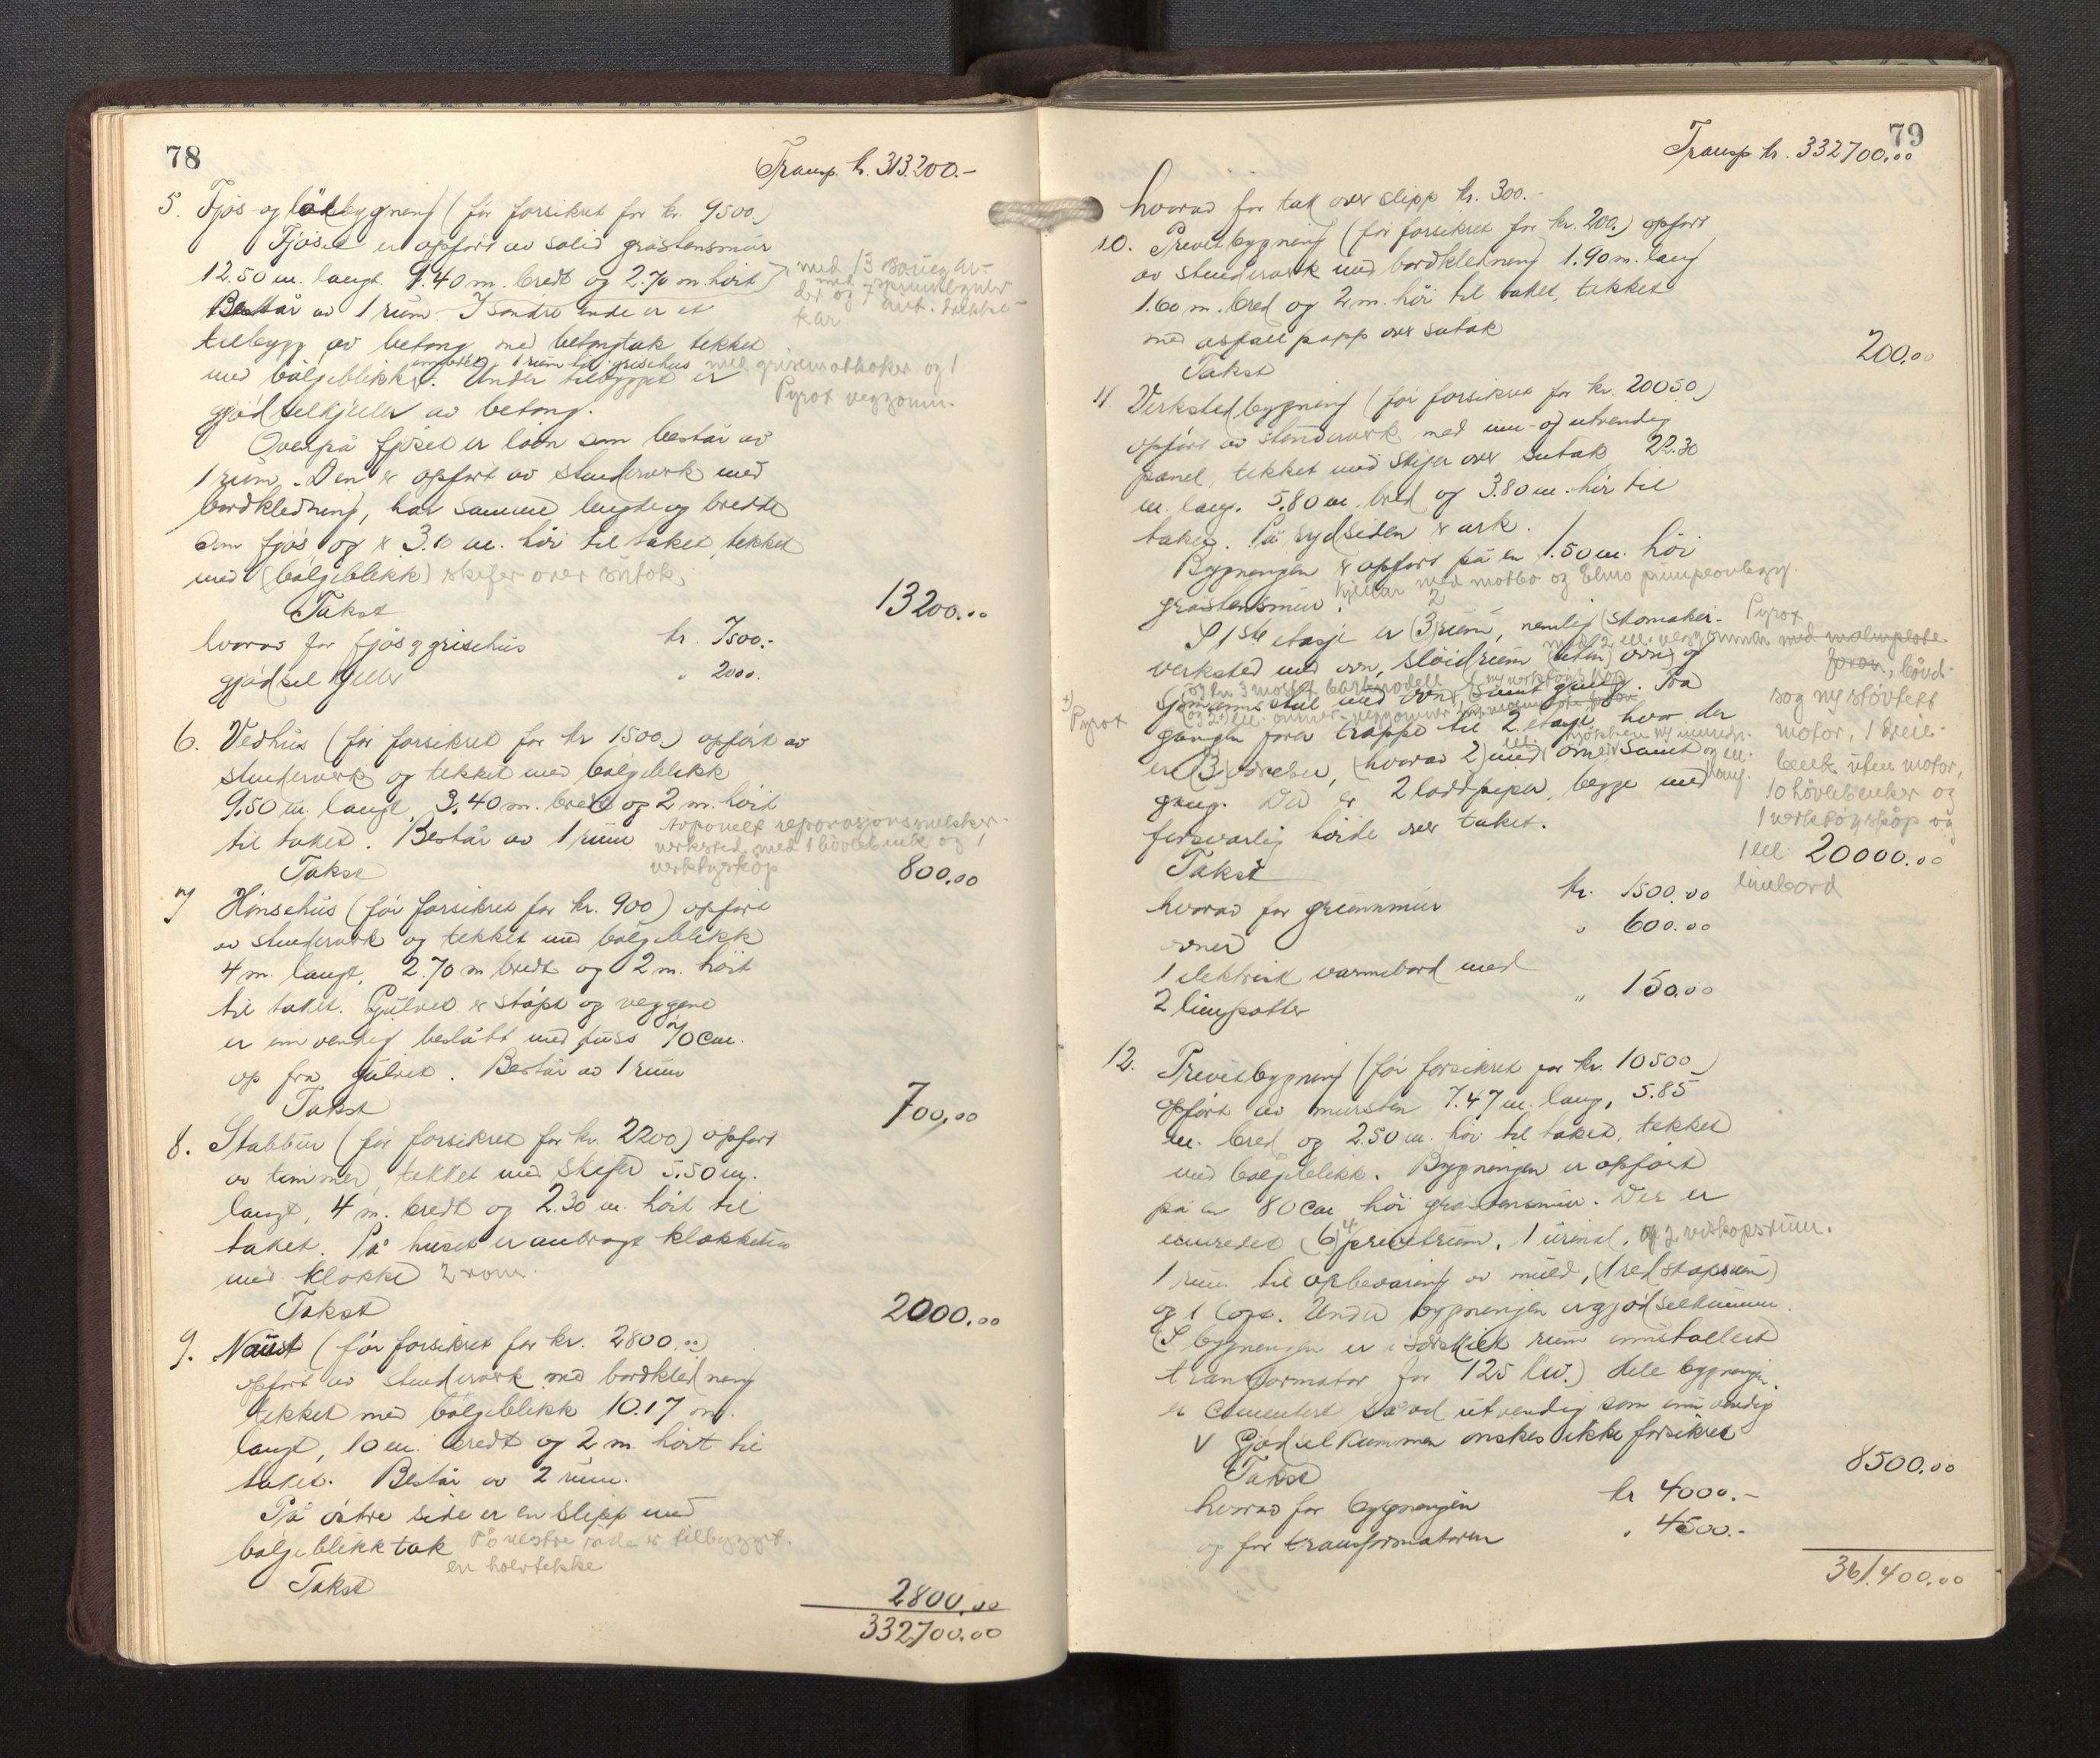 78
Transp. kr. 313.200.-
5. Fjøs- og løebygning (før forsikret for kr. 9500.)
Fjøset er opført av solid gråstensmur
12.50 m. langt. 9.40 m. bredt og 2.70 m. høit
med 13
og 7
kar
Består av 1 rum. I søndre ende er et
tilbygg av betong med betongtak tekket
med bølgeblikk. Under tilbygget er
1 rum til grisehus med grisematkoker og 1
Pyrox veggovn.
gjødselkjeller av betong.
Overpå fjøset er løen som består av
1 rum. Den er opført av stenderverk med
bordkledning, har samme lengde og bredde
som fjøs og er 3.10 m. høi til taket, tekket
med (bølgeblikk) skifer over sutak
Takst
13200.00
hvorav for fjøs og grisehus kr. 7500.-
gjødselkjeller " 2000.
6. Vedhus (før forsikret for kr 1500.) opført av
stenderverk og tekket med bølgeblikk
9.50 m. langt, 3.40 m. bredt og 2 m. høit
til taket. Består av 1 rum
reparasjonssnekker-
verksted med 1 høvlebenk og 1
verktøyskåp
Takst
800.00
7 Hønsehus (før forsikret for kr. 900) opført
av stenderverk og tekket med bølgeblikk
4 m. langt, 2.70 m bredt og 2 m. høit
til taket. Gulvet er støpt og veggene
er innvendig beslått med puss 70 cm.
op fra gulvet. Består av 1 rum
Takst
700.00
8. Stabbur (før forsikret for kr. 2200) opført
av tømmer, tekket med skifer 5.50 m.
langt, 4 m. bredt og 2.30 m. høit til
taket. På huset er anbragt klokketårn
med klokke 2 rom.
Takst
2000.00
9. Naust (før forsikret for kr. 2800.00)
opført av stenderverk med bordkledning
tekket med bølgeblikk 10.17 m.
langt, 10 m. bredt og 2 m. høit til
taket. Består av 2 rum.
På østre side er en slipp med
bølgeblikktak På vestre side er tilbygget
en
Takst
2800.00
332700.00
79
Transp kr. 332700.00
hvorav for tak over slipp kr. 300.-
10. Privetbygning (før forsikret for kr. 200.) opført
av stenderverk med bordkledning 1.90 m. lang
1.60 m. bred og 2 m. høi til taket, tekket
med asfaltpapp over sutak
Takst
200.00
11. Verkstedbygning (før forsikret for kr. 20050)
opført av stenderverk med inn- og utvendig
panel, tekket med skifer over sutak 22.30
m. lang. 5.80 m. bred og 3.80 m. høi til
taket. På sydsiden er ark.
Bygningen er opført på en 1.50 m. høi
gråstensmur. Kjeller med matbo og Elmo pumpeanlegg.
2
I 1ste etasje er (3) rum, nemlig (skomaker-
verksted med ovn, sløidrum (uten ovn) og
samt gang. Fra
+) Pyrox
gangen fører trappe til 2. etasje hvor der
er (3) værelser, (hvorav 2) med ovner samt
gang. Det er 2 loddpiper, begge med
forsvarlig høide over taket.
Pyrox
motor, 1 dreie-
benk uten motor,
10 høvlebenker og
1 verktøyskåp og
1 el.
limbord
Takst
20000.00
hvorav for grunnmur kr. 1500.00
ovner " 600.00
1 elektrisk varmebord med
2 limpotter " 150.00
12. Privetbygning (før forsikret for kr. 10500.)
opført av mursten 7.47 m. lang, 5.85
m. bred og 2.50 m. høi til taket, tekket
med bølgeblikk. Bygningen er opført
på en 80 cm høi gråstensmur. Der er
innredet (6) 4 privetrum, 1 urinal, og 2 redskapsrum.
1 rum til opbevaring av muld, (1 redskapsrum)
og 1 Under bygningen er gjødselkummer.
(I bygningen er i særskilt rum installert
transformator for 125 kw.) Hele bygningen
er cementert såvel utvendig som innvendig
V Gjødselkummen ønskes ikke forsikret
Takst
8500.00
hvorav for bygningen kr 4000.-
og for transformatoren " 4500.-
361.400.00